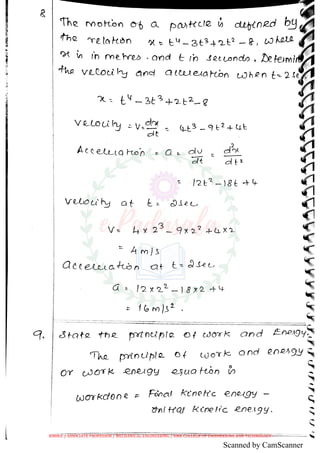 8.
The motion of a particle is defined by
the relation x = t⁴ - 3t³ + 2t² - 8, where
x is in metres . and t in seconds . Determin
the velocity and acceleration when t = 2se
x = t⁴ - 3t³ + 2t² - 8
Velocity = V = dx/dt = 4t³ - 9t² + 4t
Acceleration = a = dv/dt = d²x/dt²
= 12t² - 18t + 4
Velocity at t = 2 sec
V = 4 x 2³ - 9 x 2² + 4 x 2
= 4 m/s
acceleration at t = 2 sec.
a = 12 x 2² - 18 x 2 + 4
= 16 m/s² .
9. State the principle of work and Energy.
The principle of work and energy
or work energy equation is
workdone = Final kinetic energy -
Initial kinetic energy.
Scanned by CamScanner